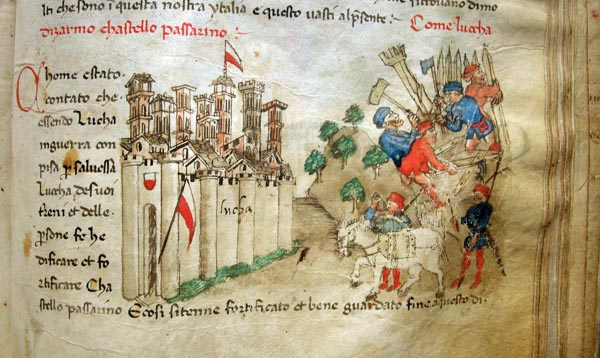 lti che sono i questa nostra ytalia e questo vasti alpsente.
dirarmo chastello passarino Come luccha
Chome estato
contato che
essendo Luccha
inguerra con
pisa p salvessa
Luccha desuoi
treni et delle
psone fe he
dificare et fo
rtificare Cha
stello passarino E cosi sitenne fortificato et bene guardato fine aquesto di.
lucha